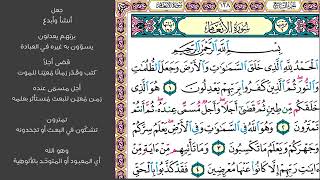 ١٢٨
سُورَةُ الأَنْعَامِ
بِسْمِ اللَّهِ الرَّحْمَٰنِ الرَّحِيمِ
الْحَمْدُ لِلَّهِ الَّذِي خَلَقَ السَّمَٰوَٰتِ وَالْأَرْضَ وَجَعَلَ الظُّلُمَٰتِ
وَالنُّورَ ثُمَّ الَّذِينَ كَفَرُوا بِرَبِّهِمْ يَعْدِلُونَ ١ هُوَ الَّذِي
خَلَقَكُم مِّن طِينٍ ثُمَّ قَضَىٰ أَجَلًا وَأَجَلٌ مُّسَمًّى عِندَهُ ثُمَّ أَنتُمْ
تَمْتَرُونَ ٢ وَهُوَ اللَّهُ فِي السَّمَٰوَٰتِ وَفِي الْأَرْضِ يَعْلَمُ سِرَّكُمْ
وَجَهْرَكُمْ وَيَعْلَمُ مَا تَكْسِبُونَ ٣ وَمَا تَأْتِيهِم مِّنْ ءَايَةٍ مِّنْ ءَايَٰتِ
رَبِّهِمْ إِلَّا كَانُوا عَنْهَا مُعْرِضِينَ ٤ فَقَدْ كَذَّبُوا بِالْحَقِّ
جعل
أنشأ وأبدع
بربهم يعدلون
يسوّون به غيره في العبادة
قضى أجلاً
كتب وقدّر زمانًا معيّنًا للموت
أجل مسمى عنده
زمن معيّن للبعث مستأثر بعلمه
تمترون
تشكّون في البعث أو تجحدونه
وهو الله
أي المعبود أو المتوحّد بالألوهية